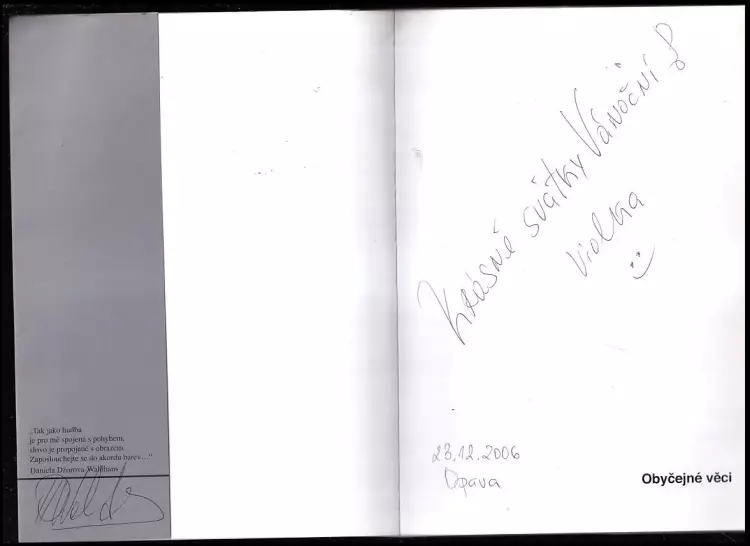 „Tak jako hudba
je pro mě spojená s pohybem,
slovo je propojené s obrazem.
Zaposlouchejte se do akordu barev...“
Daniela Džurova-Waldhans
Krásné svátky Vánoční
Violka
23.12.2006
Opava
Obyčejné věci